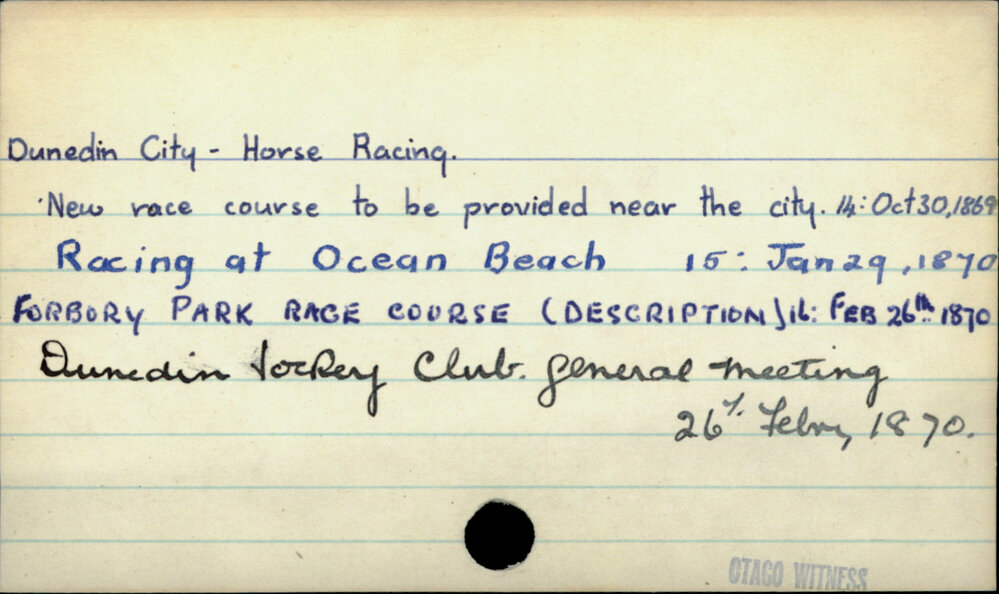 Dunedin City - Horse Racing.
New race course to be provided near the city. 14: Oct 30, 1869
Racing at Ocean Beach 15: Jan 29, 1870
FORBURY PARK RACE COURSE (DESCRIPTION) 16: FEB 26th 1870
Dunedin Jockey Club. General Meeting
26/. Febry 1870.
OTAGO WITNESS